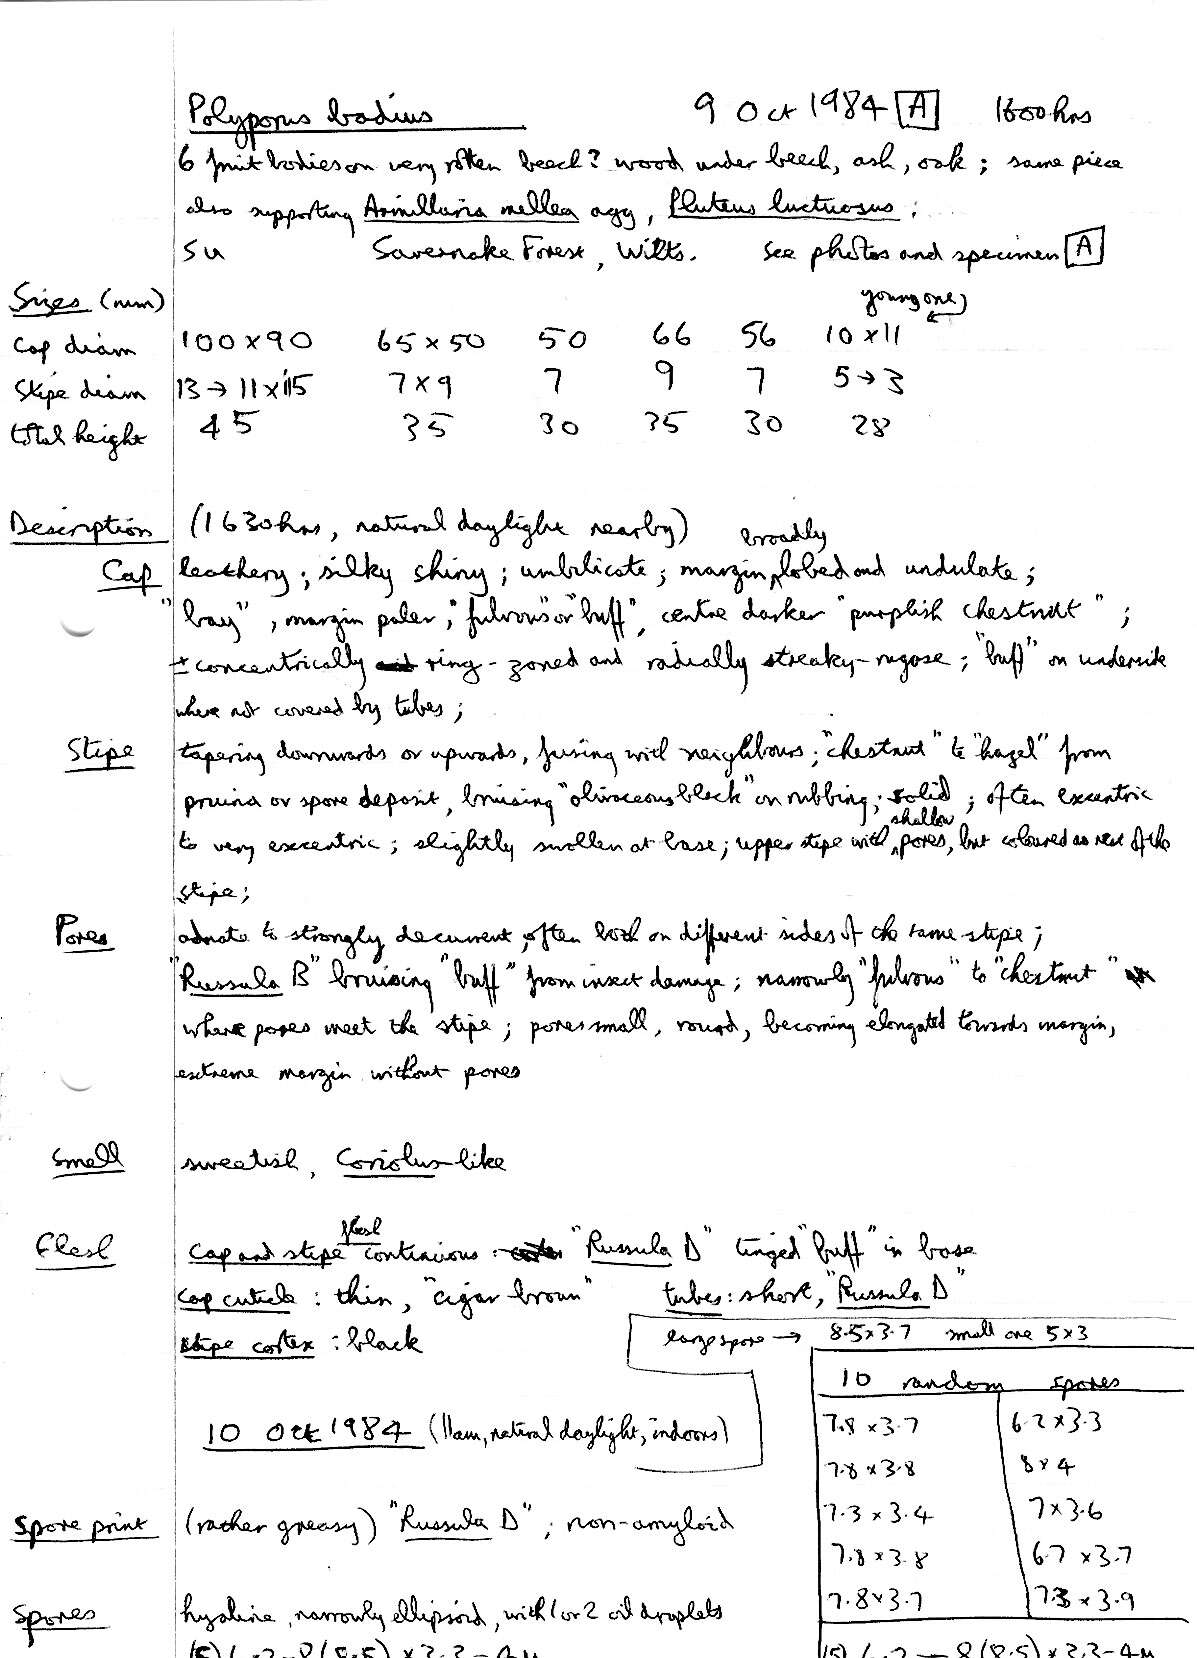 Polyporus badius 9 Oct 1984 [A] 1600hrs
6 fruitbodies on very rotten beech? wood under beech, ash, oak; same piece
also supporting Armillaria mellea agg, Pluteus luctuosus;
SU Savernake Forest, Wilts. See photos and specimen [A]
Sizes (mm) young one
Cap diam 100 x 90 65 x 50 50 66 56 10 x 11
Stipe diam 13 → 11 x 115 7 x 9 7 9 7 5 → 3
total height 45 35 30 35 30 28
Description (1630hrs, natural daylight nearby)
broadly
Cap leathery; silky shiny; umbilicate; margin lobed and undulate;
"bay", margin paler, "fulvous" or "buff", centre darker "purplish chestnut";
± concentrically ring-zoned and radially streaky-rugose; "buff" on underside
where not covered by tubes;
Stipe tapering downwards or upwards, fusing with neighbours; "chestnut" to "hazel" from
pruina or spore deposit, bruising "olivaceous black" on rubbing; solid; often excentric
shallow
to very excentric; slightly swollen at base; upper stipe with pores, but coloured as rest of the
stipe;
Pores adnate to strongly decurrent, often both on different sides of the same stipe;
"Russula B" bruising "buff" from insect damage; narrowly "fulvous" to "chestnut"
where pores meet the stipe; pores small, round, becoming elongated towards margin,
extreme margin without pores
Smell sweetish, Coriolus-like
flesh
Flesh Cap and stipe continuous: "Russula D" tinged "buff" in base
Cap cuticle: thin, "cigar brown" tubes: short, "Russula D"
stipe cortex: black
large spore → 8.5 x 3.7 small one 5 x 3
10 random spores
10 Oct 1984 (11am, natural daylight, indoors)
7.8 x 3.7 6.2 x 3.3
7.8 x 3.8 8 x 4
7.3 x 3.4 7 x 3.6
7.8 x 3.8 6.7 x 3.7
7.8 x 3.7 7.3 x 3.9
Spore print (rather greasy) "Russula D"; non-amyloid
Spores hyaline, narrowly ellipsoid, with 1 or 2 oil droplets
(5) 6.2-8 (8.5) x 3.3-4µ (5) 6.2 - 8 (8.5) x 3.3-4µ